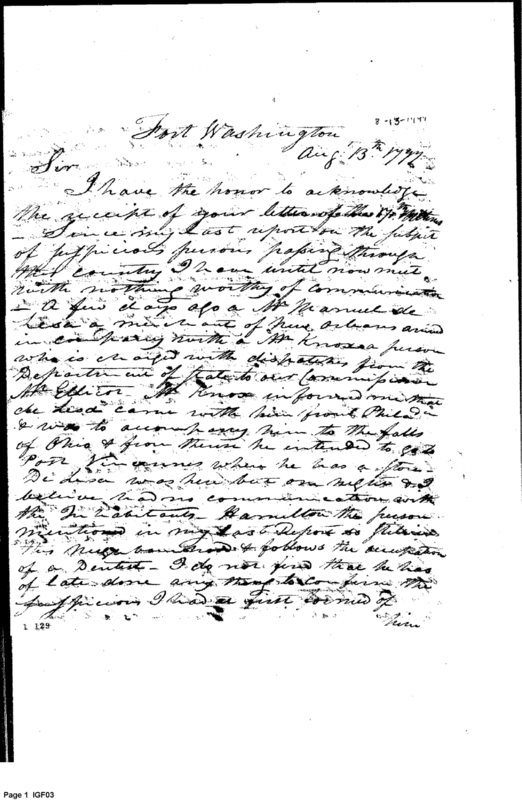 8-13-1797
Fort Washington
Augt. 13th 1797.
Sir
I have the honor to acknowledge
the receipt of your letter of the
- Since my last report on the subject
of suspicious persons passing through
this country I have until now met
with nothing worthy of communication
- A few days ago a Mr Manuel de
Lesa a merchant of New Orleans arrived
in company with a Mr Knox a person
who is charged with dispatches from the
Department of State to our Commissioner
Mr Ellicot Mr Knox informed me that
de Lesa came with him from Philada
& was to accompany him to the falls
of Ohio & from thence he intended to go to
Post Vincennes where he has a store
De Lesa was here but one night & I
believe had no communication with
the Inhabitants - Hamilton the person
mentioned in my last Report is still in
this & follows the occupation
of a Dentist - I do not find that he has
of late done any thing to confirm the
suspicions I had at first formed of
him
1 129
Page 1 IGF03